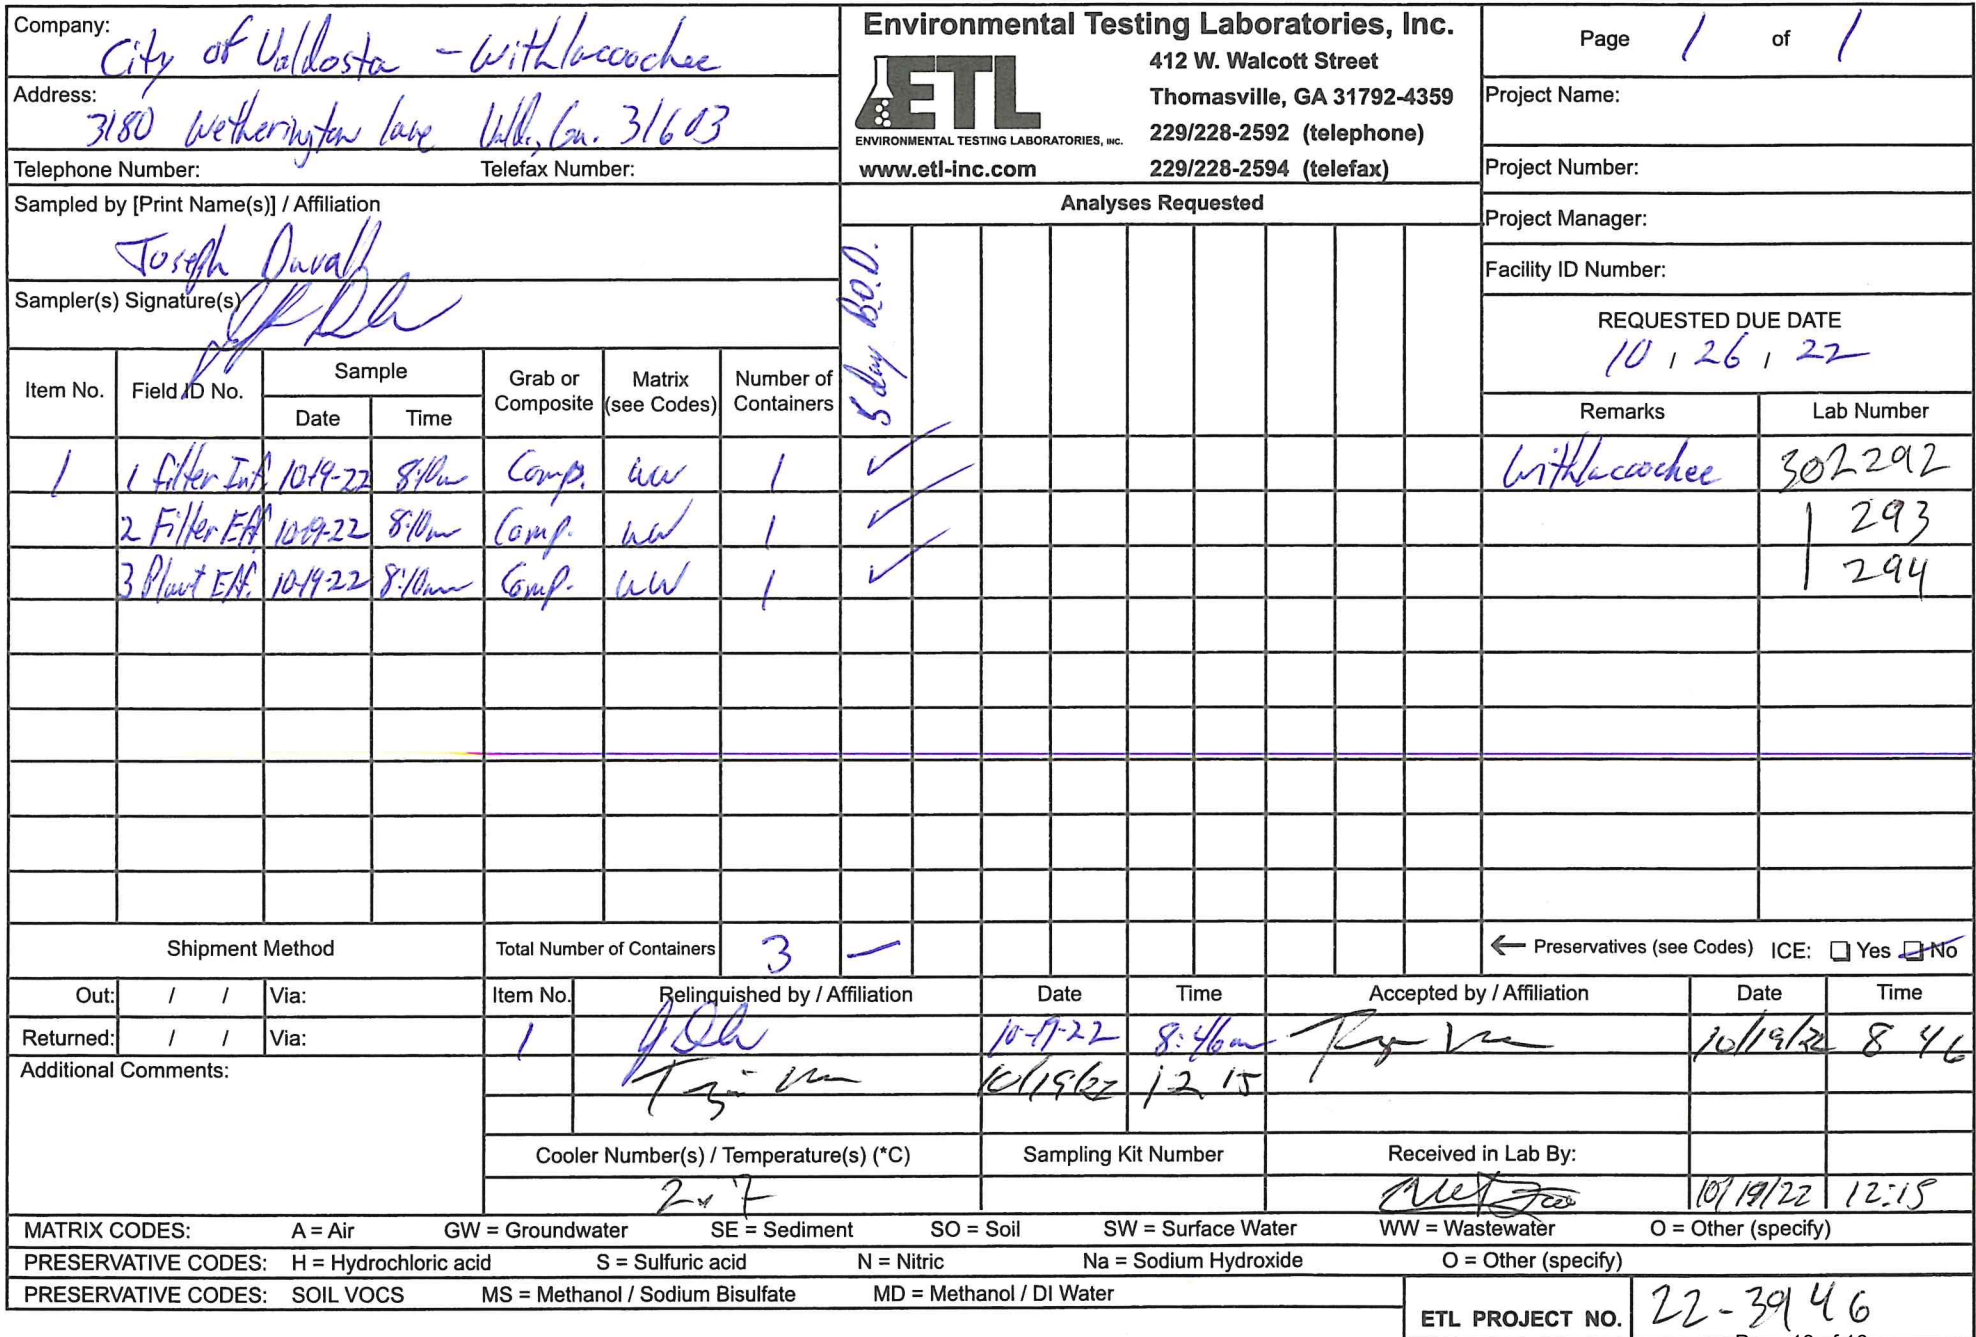 Company: City of Valdosta - Withlacoochee
Address: 3180 Wetherington Lane Vald., Ga. 31603
Telephone Number: Telefax Number:
Sampled by [Print Name(s)] / Affiliation
Joseph Duvall
Sampler(s) Signature(s)
Environmental Testing Laboratories, Inc.
ETL
ENVIRONMENTAL TESTING LABORATORIES, INC.
www.etl-inc.com
412 W. Walcott Street
Thomasville, GA 31792-4359
229/228-2592 (telephone)
229/228-2594 (telefax)
Page 1 of 1
Project Name:
Project Number:
Project Manager:
Facility ID Number:
REQUESTED DUE DATE
10 / 26 / 22
Analyses Requested
5 day B.O.D.
Item No. Field ID No. Sample Date Time Grab or Composite Matrix (see Codes) Number of Containers Remarks Lab Number
1 1 Filter Inf 10-19-22 8:10am Comp. WW 1 ✓ Withlacoochee 302292
2 Filter Eff 10-19-22 8:10am Comp. WW 1 ✓ 293
3 Plant Eff. 10-19-22 8:10am Comp. WW 1 ✓ 294
Shipment Method Total Number of Containers 3 — ← Preservatives (see Codes) ICE: ☐ Yes ☐ No
Out: / / Via: Item No. Relinquished by / Affiliation Date Time Accepted by / Affiliation Date Time
Returned: / / Via: 1 10-19-22 8:46am 10/19/22 8 46
Additional Comments: 10/19/22 12 15
Cooler Number(s) / Temperature(s) (*C) Sampling Kit Number Received in Lab By:
2.7 10/19/22 12:15
MATRIX CODES: A = Air GW = Groundwater SE = Sediment SO = Soil SW = Surface Water WW = Wastewater O = Other (specify)
PRESERVATIVE CODES: H = Hydrochloric acid S = Sulfuric acid N = Nitric Na = Sodium Hydroxide O = Other (specify)
PRESERVATIVE CODES: SOIL VOCS MS = Methanol / Sodium Bisulfate MD = Methanol / DI Water
ETL PROJECT NO. 22-3946